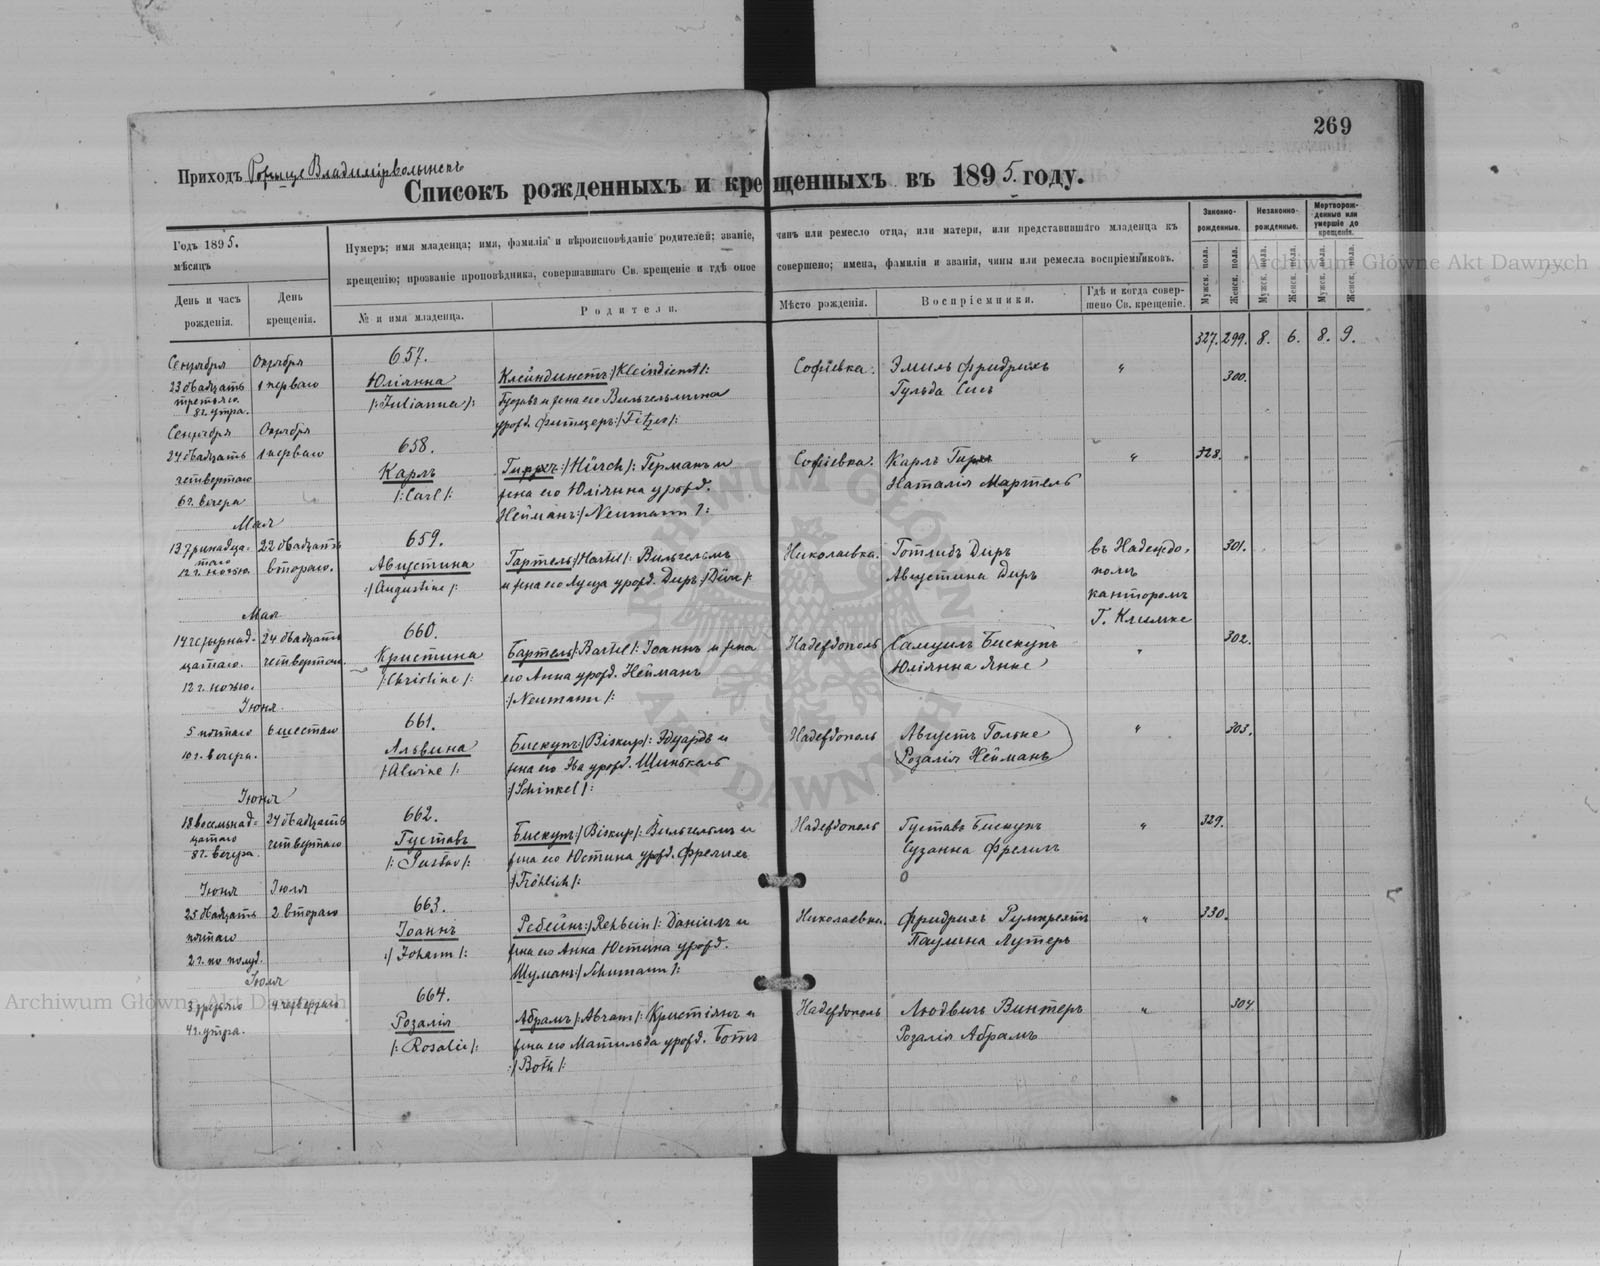 269
Приходъ Рожище Владимірволынскъ
Списокъ рожденныхъ и крещенныхъ въ 1895. году.
Годъ 1895.
мѣсяцъ
День и часъ рожденія.
День крещенія.
Нумеръ; имя младенца; имя, фамилія и вѣроисповѣданіе родителей; званіе, чинъ или ремесло отца, или матери, или представившаго младенца къ
крещенію; прозваніе проповѣдника, совершавшаго Св. крещеніе и гдѣ оное совершено; имена, фамиліи и званія, чины или ремесла воспріемниковъ.
№ и имя младенца.
Родители.
Мѣсто рожденія.
Воспріемники.
Гдѣ и когда совершено Св. крещеніе.
Законнорожденные.
Незаконнорожденные.
Мертворожденные или умершіе до крещенія.
Мужск. пола.
Женск. пола.
Мужск. пола.
Женск. пола.
Мужск. пола.
Женск. пола.
327. 299. 8. 6. 8. 9.
Сентября
23 двадцать
третьяго
8 г. утра.
Октября
1 перваго
657.
Юліянна
/: Julianna /:
Клейндинстъ :/ Kleindienst /:
Густавъ и жена его Вильгельмина
урожд. Фитцеръ :/ Fitzer /:
Софіевка.
Эмиль Фридрихъ
Гульда
"
300.
Сентября
24 двадцать
четвертаго
6 г. вечера
Октября
1 перваго
658.
Карлъ
/: Carl /:
:/ Hürch /: Германъ и
жена его Юліянна урожд.
Нейманъ :/ Neumann /:
Софіевка.
Карлъ
Наталія Мартель
"
328.
Мая
13. Тринадца-
таго
12 г. ночью.
22 двадцать
втораго.
659.
Августина
:/ Augustine /:
Гартель :/ Hartel /: Вильгельмъ
и жена его Луиза урожд. Диръ :/ Dürr /:
Николаевка.
Готлибъ Диръ
Августина Диръ
въ Надеждо-
полѣ
канторомъ
Г. Климке
301.
Мая
14 четырнад-
цатаго.
12 г. ночью.
24 двадцать
четвертаго.
660.
Кристина
/: Christine /:
Бартель /: Bartel /: Іоаннъ и жена
его Анна урожд. Нейманъ
:/ Neumann /:
Надеждополь
Самуилъ Бискупъ
Юліянна Янке
"
302.
Іюня
5 пятаго
10 г. вечера.
6 шестаго
661.
Альвина
/: Alwine /:
Бискупъ :/ Biskup /: Эдуардъ и
жена его Эва урожд. Шинкель
:/ Schinkel /:
Надеждополь
Августъ Гольке
Розалія Нейманъ
"
303.
Іюня
18 восемьнад-
цатаго
8 г. вечера.
24 двадцать
четвертаго
662.
Густавъ
/: Gustav /:
Бискупъ :/ Biskup /: Вильгельмъ и
жена его Юстина урожд. Фрелихъ
:/ Fröhlich /:
Надеждополь
Густавъ Бискупъ
Сузанна Фрелихъ
"
329.
Іюня
25 двадцать
пятаго
2 г. по полуд.
Іюля
2 втораго
663.
Іоаннъ
:/ Johann /:
Ребейнъ :/ Rehbein /: Даніилъ и
жена его Анна Юстина урожд.
Шуманъ :/ Schumann /:
Николаевка.
Фридрихъ Румпрехтъ
Паулина Лутеръ
"
330.
Іюля
3 третьяго
4 г. утра.
4 четвертаго
664.
Розалія
/: Rosalie /:
Абрамъ /: Abram /: Кристіянъ и
жена его Матильда урожд. Ботъ
:/ Both /:
Надеждополь
Людвигъ Винтеръ
Розалія Абрамъ
"
304.
Archiwum Główne Akt Dawnych
Archiwum Główne Akt Dawnych
ARCHIWUM GŁÓWNE AKT DAWNYCH